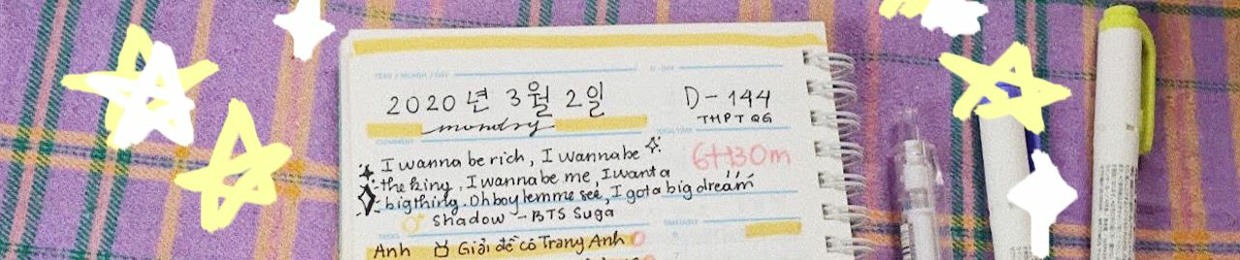 YEAR / MONTH / DAY
D - DAY
2020 년 3월 2일
D - 144
monday
THPT QG
COMMENT
I wanna be rich, I wanna be
6H30m
the king, I wanna be me, I want a
big thing. Oh boy lemme see, I got a big dream
Shadow - BTS Suga
TASKS
TIMETABLE
Anh Giải đề cô Trang Anh